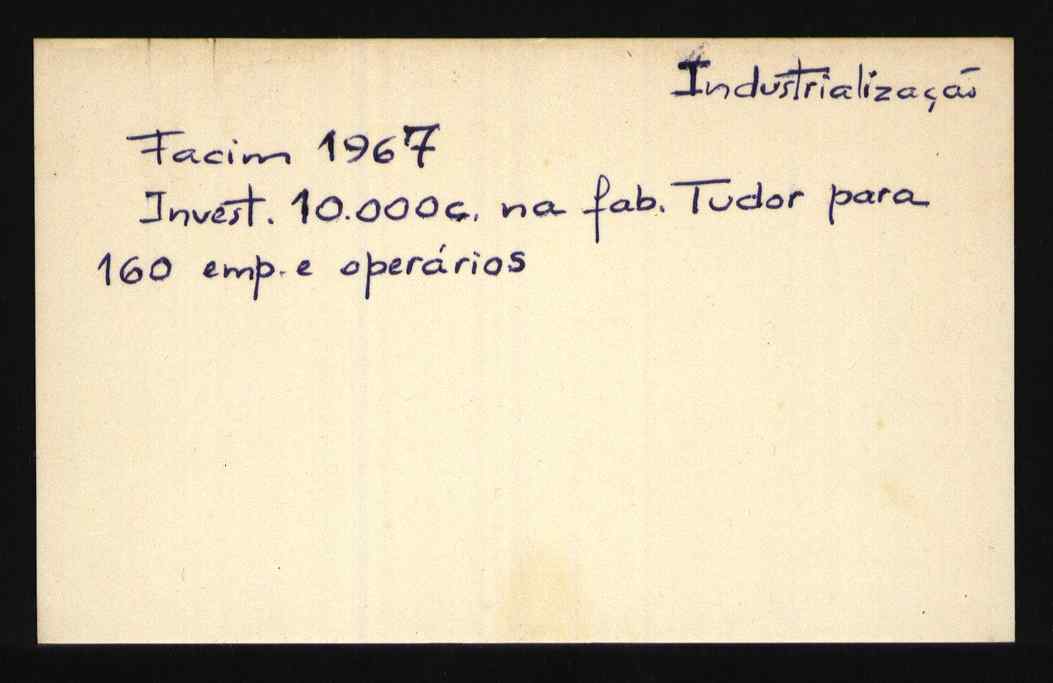 Industrialização
Facim 1967
Invest. 10.000c. na fab. Tudor para
160 emp. e operários